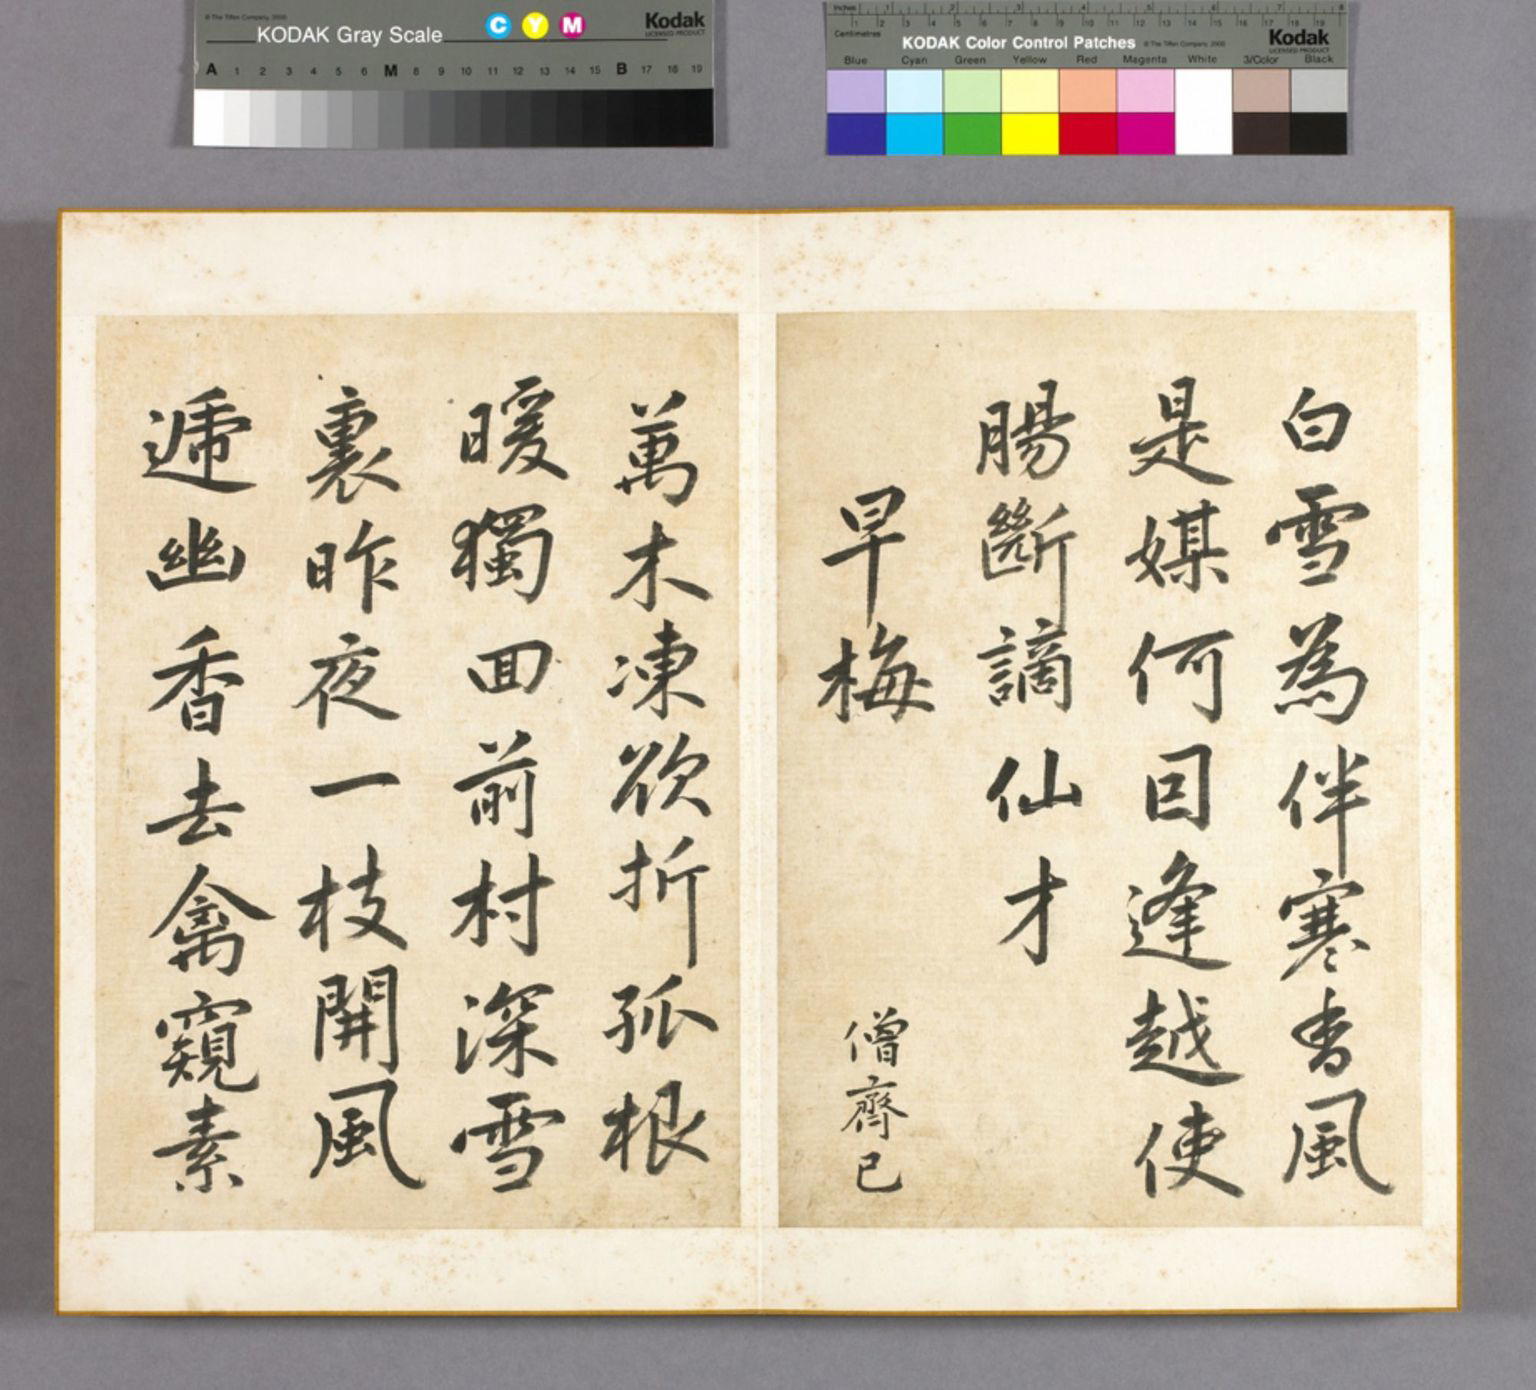 © The Tiffen Company, 2000
KODAK Gray Scale
C Y M
Kodak
LICENSED PRODUCT
A 1 2 3 4 5 6 M 8 9 10 11 12 13 14 15 B 17 18 19
Inches 1 2 3 4 5 6 7 8
Centimetres 1 2 3 4 5 6 7 8 9 10 11 12 13 14 15 16 17 18 19
KODAK Color Control Patches
© The Tiffen Company, 2000
Kodak
LICENSED PRODUCT
Blue Cyan Green Yellow Red Magenta White 3/Color Black
白雪為伴寒香風
是媒何因逢越使
腸斷謫仙才
早梅 僧齊已
萬木凍欲折孤根
暖獨回前村深雪
裏昨夜一枝開風
遞幽香去禽窺素